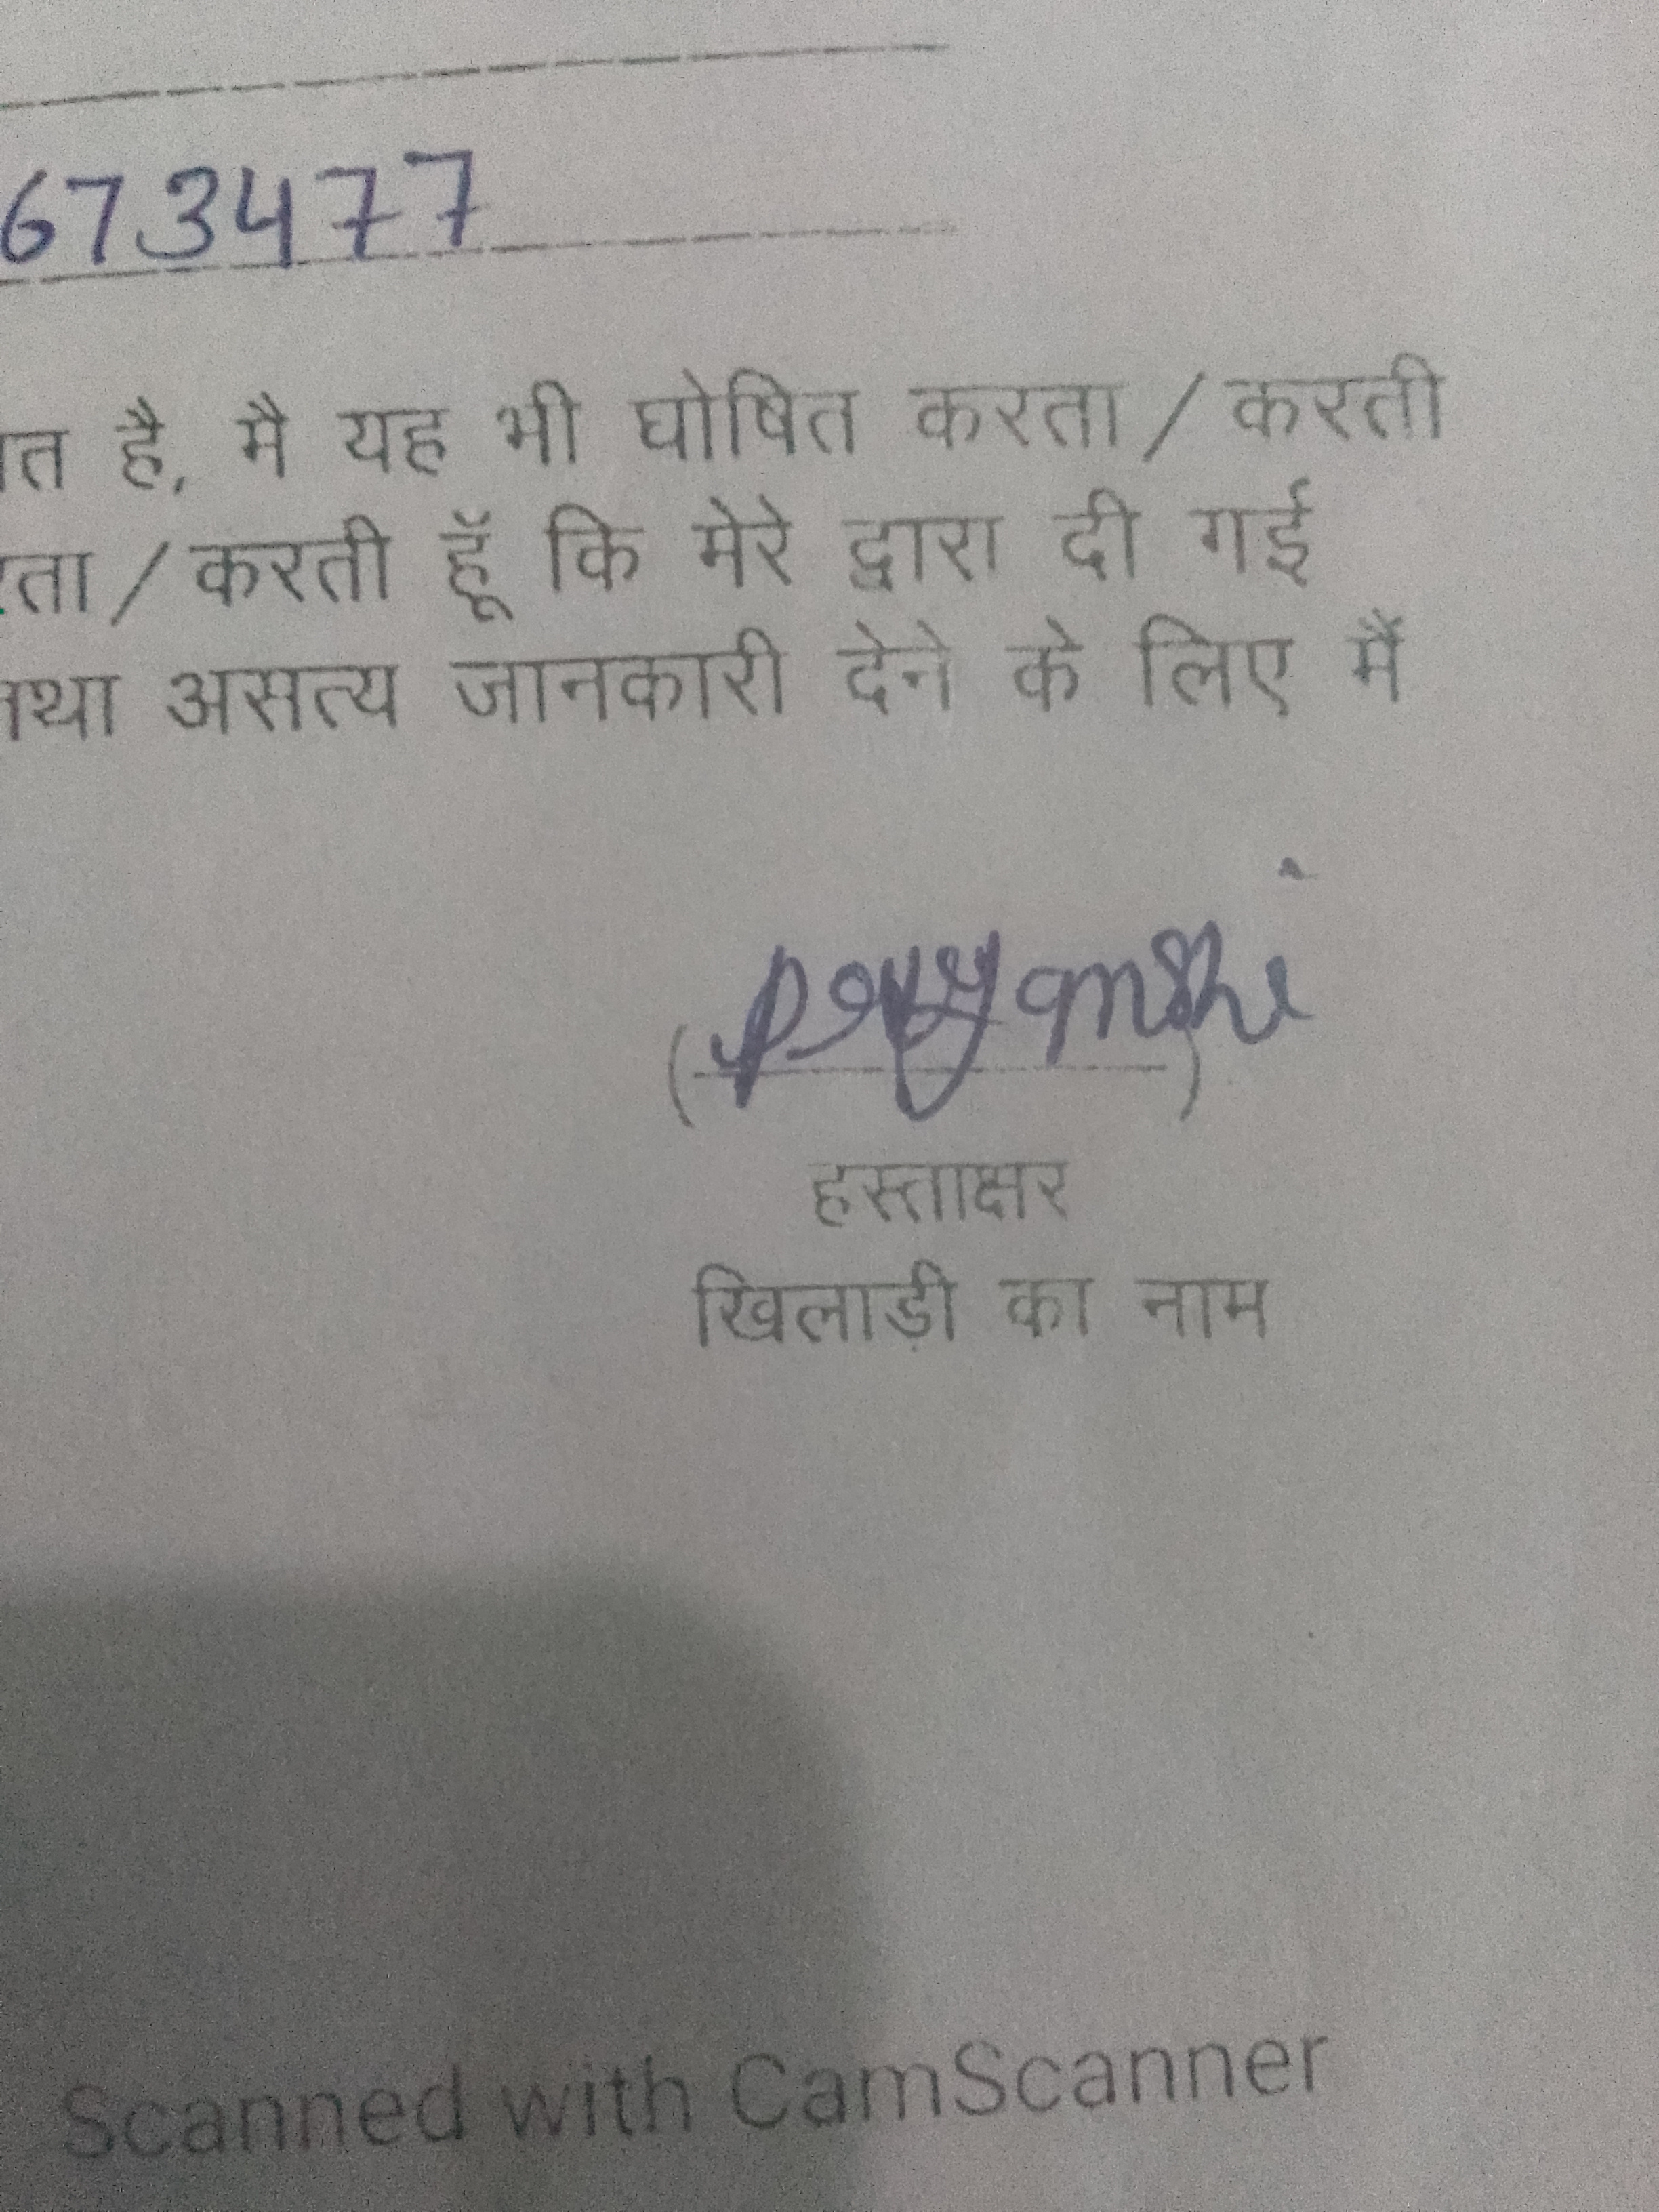 673477
त है, मै यह भी घोषित करता / करती
ता / करती हूॅ कि मेरे द्वारा दी गई
तथा असत्य जानकारी देने के लिए मैं
(
)
हस्ताक्षर
खिलाड़ी का नाम
Scanned with CamScanner